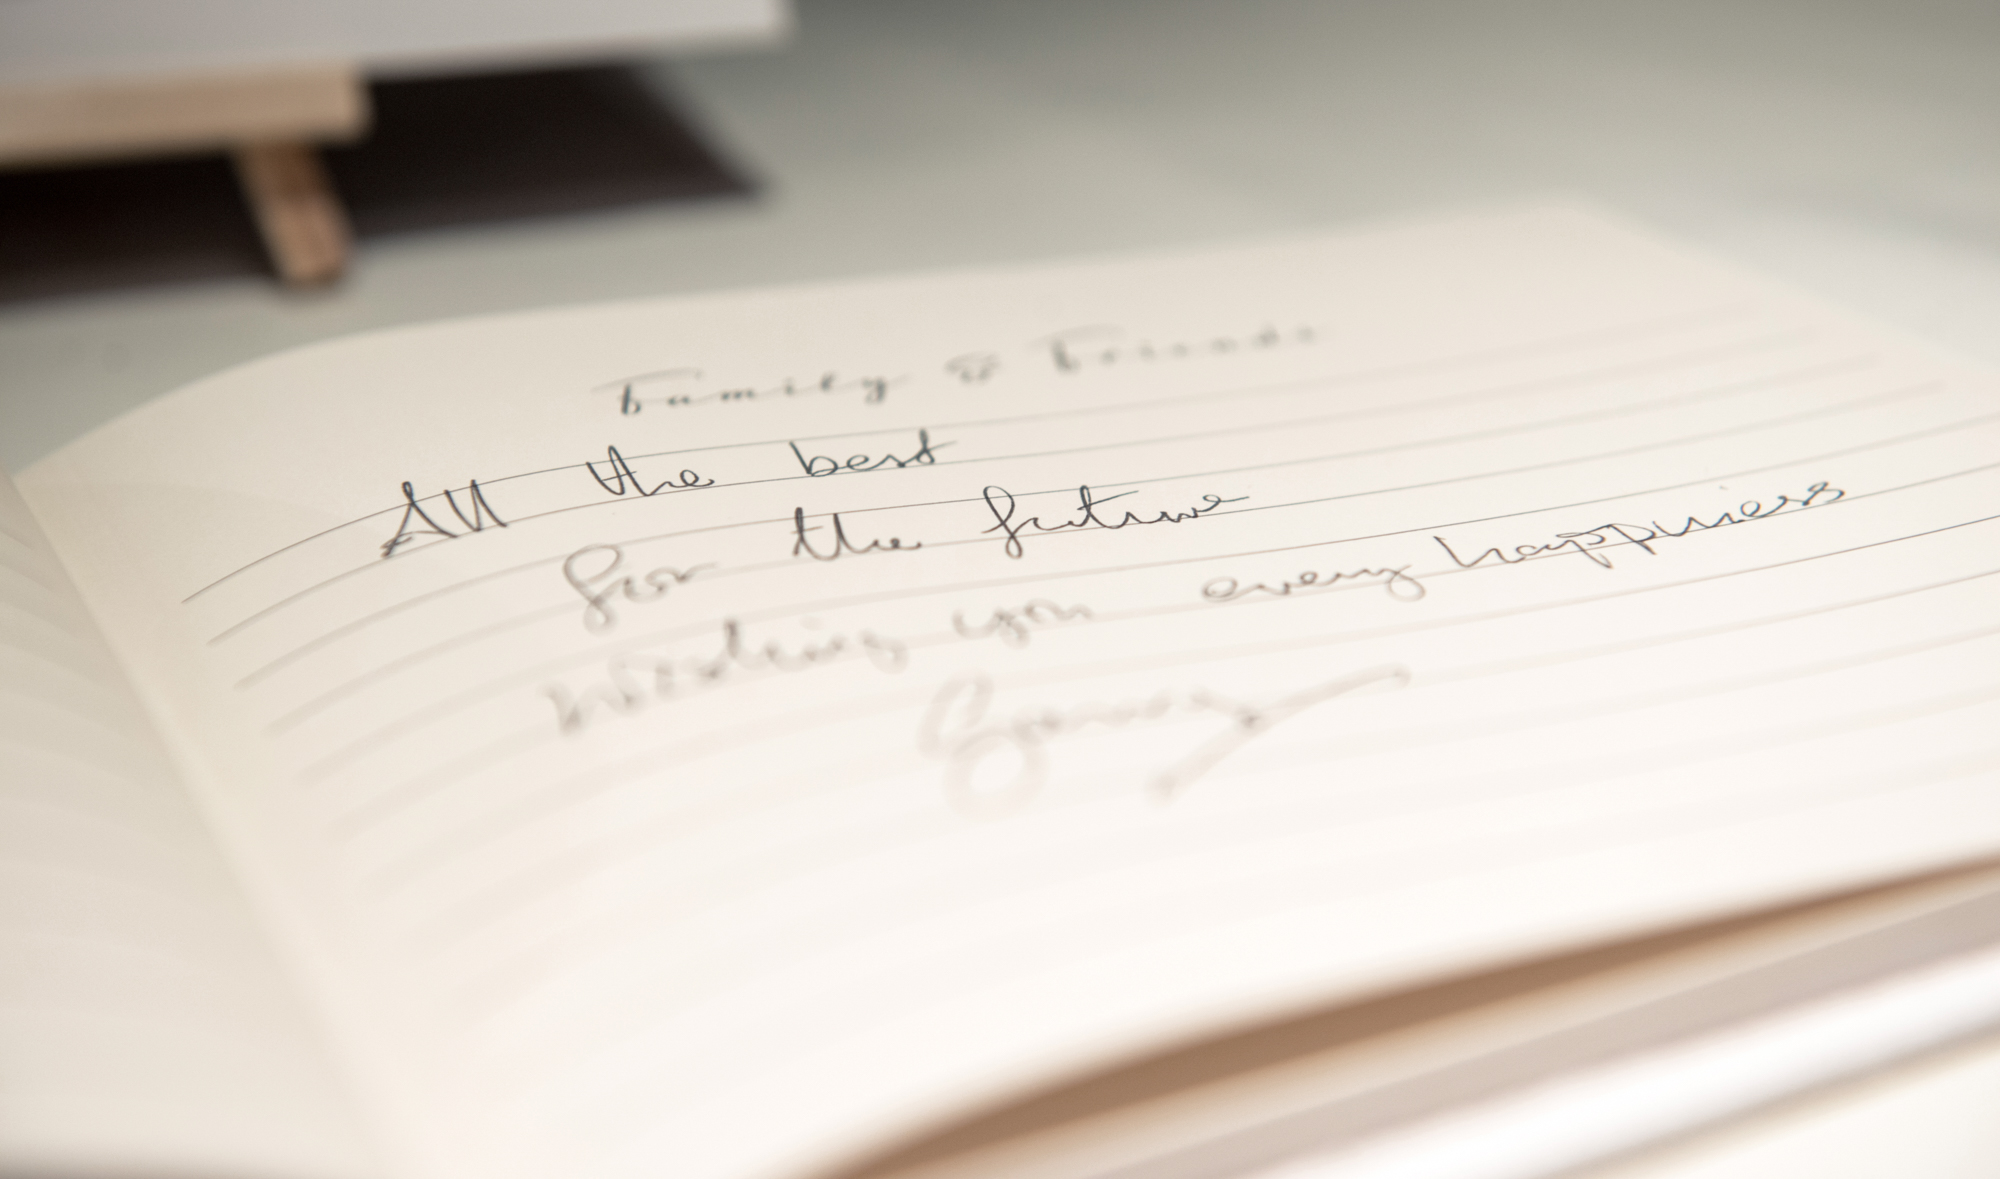 Family & Friends
All the best
for the future
Wishing you every happiness